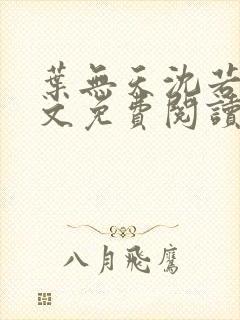 葉無天沈若
文免費閱讀
八月飛鷹